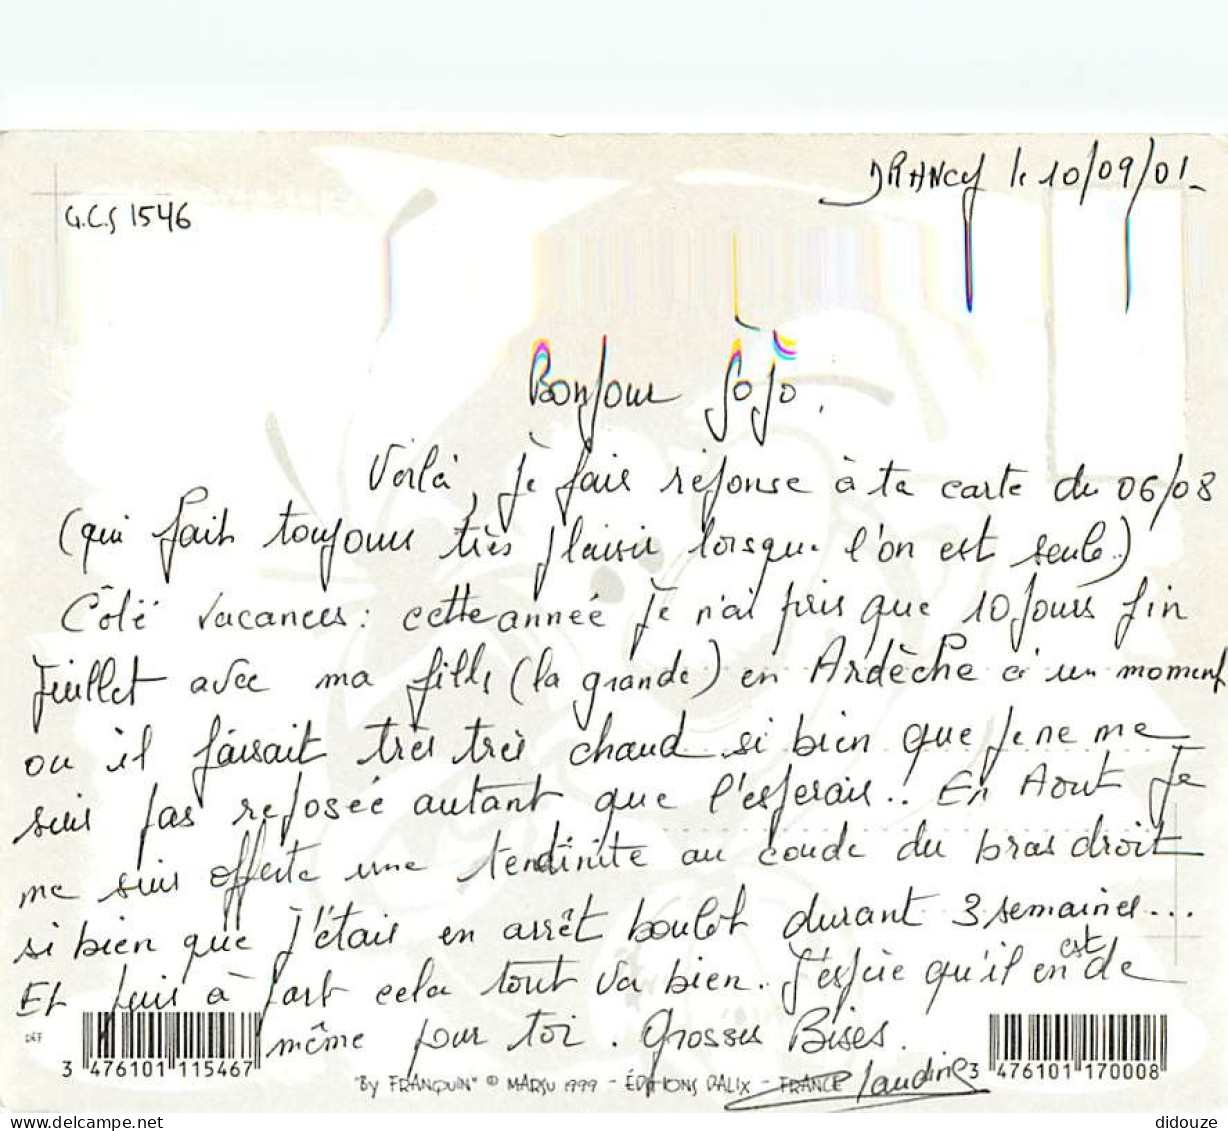 DRANCY le 10/09/01_
G.C.S 1546
Bonjour Jojo,
Voilà, je fais réponse à ta carte du 06/08
(qui fait toujours très plaisir lorsque l'on est seule)
Côté vacances : cette année je n'ai pris que 10 jours fin
Juillet avec ma fille (la grande) en Ardèche à un moment
ou il faisait très très chaud si bien que je ne me
suis pas reposée autant que l'esperais.. En Aout je
me suis offerte une tendinite au coude du bras droit
si bien que j'étais en arrêt boulot durant 3 semaines...
Et puis à part cela tout va bien. J'espère qu'il en est de
même pour toi. Grosses Bises.
DEF
3 476101 115467
"By FRANQUIN" © MARSU 1999 - ÉDITIONS DALIX - FRANCE
3 476101 170008
didouze